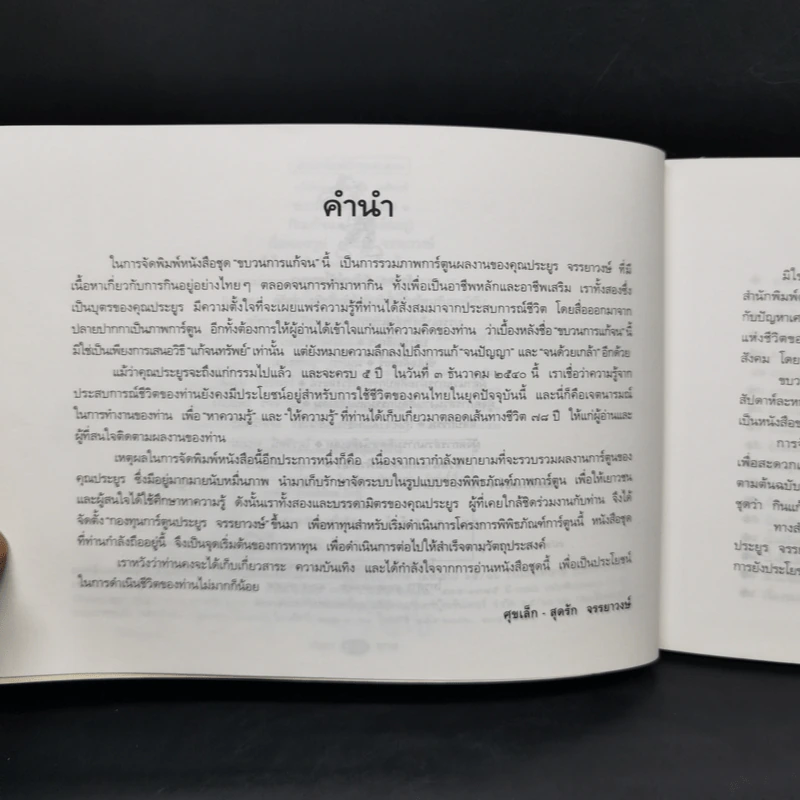 คำนำ
ในการจัดพิมพ์หนังสือชุด "ขบวนการแก้จน" นี้ เป็นการรวมภาพการ์ตูนผลงานของคุณประยูร จรรยาวงษ์ ที่มี
เนื้อหาเกี่ยวกับการกินอยู่อย่างไทยๆ ตลอดจนการทำมาหากิน ทั้งเพื่อเป็นอาชีพหลักและอาชีพเสริม เราทั้งสองซึ่ง
เป็นบุตรของคุณประยูร มีความตั้งใจที่จะเผยแพร่ความรู้ที่ท่านได้สั่งสมมาจากประสบการณ์ชีวิต โดยสื่อออกมาจาก
ปลายปากกาเป็นภาพการ์ตูน อีกทั้งต้องการให้ผู้อ่านได้เข้าใจแก่นแท้ความคิดของท่าน ว่าเบื้องหลังชื่อ "ขบวนการแก้จน" นี้
มิใช่เป็นเพียงการเสนอวิธี "แก้จนทรัพย์" เท่านั้น แต่ยังหมายความลึกลงไปถึงการแก้ "จนปัญญา" และ "จนด้วยเกล้า" อีกด้วย
แม้ว่าคุณประยูรจะถึงแก่กรรมไปแล้ว และจะครบ ๕ ปี ในวันที่ ๓ ธันวาคม ๒๕๔๐ นี้ เราเชื่อว่าความรู้จาก
ประสบการณ์ชีวิตของท่านยังคงมีประโยชน์อยู่สำหรับการใช้ชีวิตของคนไทยในยุคปัจจุบันนี้ และนี่ก็คือเจตนารมณ์
ในการทำงานของท่าน เพื่อ "หาความรู้" และ "ให้ความรู้" ที่ท่านได้เก็บเกี่ยวมาตลอดเส้นทางชีวิต ๗๘ ปี ให้แก่ผู้อ่านและ
ผู้ที่สนใจติดตามผลงานของท่าน
เหตุผลในการจัดพิมพ์หนังสือนี้อีกประการหนึ่งก็คือ เนื่องจากเรากำลังพยายามที่จะรวบรวมผลงานการ์ตูนของ
คุณประยูร ซึ่งมีอยู่มากมายนับหมื่นภาพ นำมาเก็บรักษาจัดระบบในรูปแบบของพิพิธภัณฑ์ภาพการ์ตูน เพื่อให้เยาวชน
และผู้สนใจได้ใช้ศึกษาหาความรู้ ดังนั้นเราทั้งสองและบรรดามิตรของคุณประยูร ผู้ที่เคยใกล้ชิดร่วมงานกับท่าน จึงได้
จัดตั้ง "กองทุนการ์ตูนประยูร จรรยาวงษ์" ขึ้นมา เพื่อหาทุนสำหรับเริ่มดำเนินการโครงการพิพิธภัณฑ์การ์ตูนนี้ หนังสือชุด
ที่ท่านกำลังถืออยู่นี้ จึงเป็นจุดเริ่มต้นของการหาทุน เพื่อดำเนินการต่อไปให้สำเร็จตามวัตถุประสงค์
เราหวังว่าท่านคงจะได้เก็บเกี่ยวสาระ ความบันเทิง และได้กำลังใจจากการอ่านหนังสือชุดนี้ เพื่อเป็นประโยชน์
ในการดำเนินชีวิตของท่านไม่มากก็น้อย
ศุขเล็ก - สุดรัก จรรยาวงษ์
มิใช
สำนักพิมพ์
กับปัญหาเศ
แห่งชีวิตของ
สังคม โดย
ขบว
สัปดาห์ละห
เป็นหนังสือช
การจ
เพื่อสะดวก
ตามต้นฉบับ
ชุดว่า กินแก้
ทางส
ประยูร จรร
การยังประโย